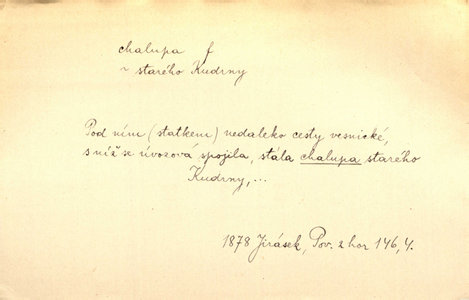 chalupa f
~ starého Kudrny
Pod ním (statkem) nedaleko cesty vesnické,
s níž se úvozová spojila, stála chalupa starého
Kudrny,...
1878 Jirásek, Pov. z hor 146,4.